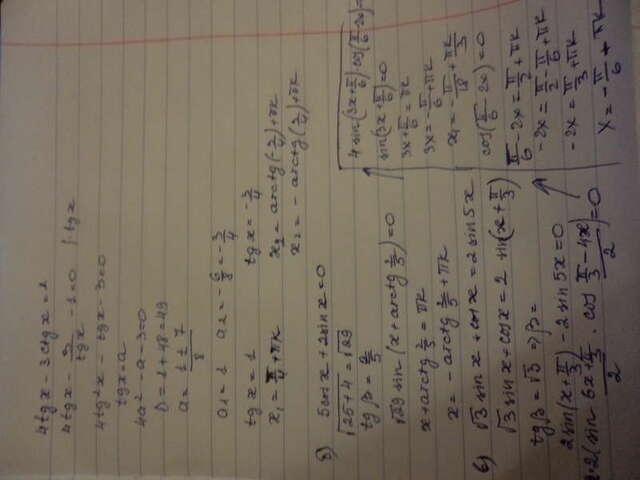 4tgx - 3ctgx = 1
4tgx - 3/tgx - 1 = 0 | · tgx
4tg²x - tgx - 3 = 0
tgx = a
4a² - a - 3 = 0
D = 1 + 48 = 49
a = (1 ± 7)/8
a₁ = 1 a₂ = -6/8 = -3/4
tgx = 1 tgx = -3/4
x₁ = π/4 + πk x₂ = arctg(-3/4) + πk
x₂ = -arctg(3/4) + πk
5cosx + 2sinx = 0
√25+4 = √29
√29 sin(x + arctg 5/2) = 0
x + arctg 5/2 = πk
x = -arctg 5/2 + πk
√3 sinx + cosx = 2sin5x
√3 sinx + cosx = 2 sin(x + π/3)
tgβ = √3 ⇒ β =
2sin(x + π/3) - 2sin5x = 0
2·2(sin (6x + π/3)/2 · cos (π/3 - 4x)/2) = 0
4sin(3x + π/6)·cos(π/6 - 2x) =
sin(3x + π/6) = 0
3x + π/6 = πk
3x = -π/6 + πk
x₁ = -π/18 + πk/3
cos(π/6 - 2x) = 0
π/6 - 2x = π/2 + πk
-2x = π/2 - π/6 + πk
-2x = π/3 + πk
x = -π/6 + πk